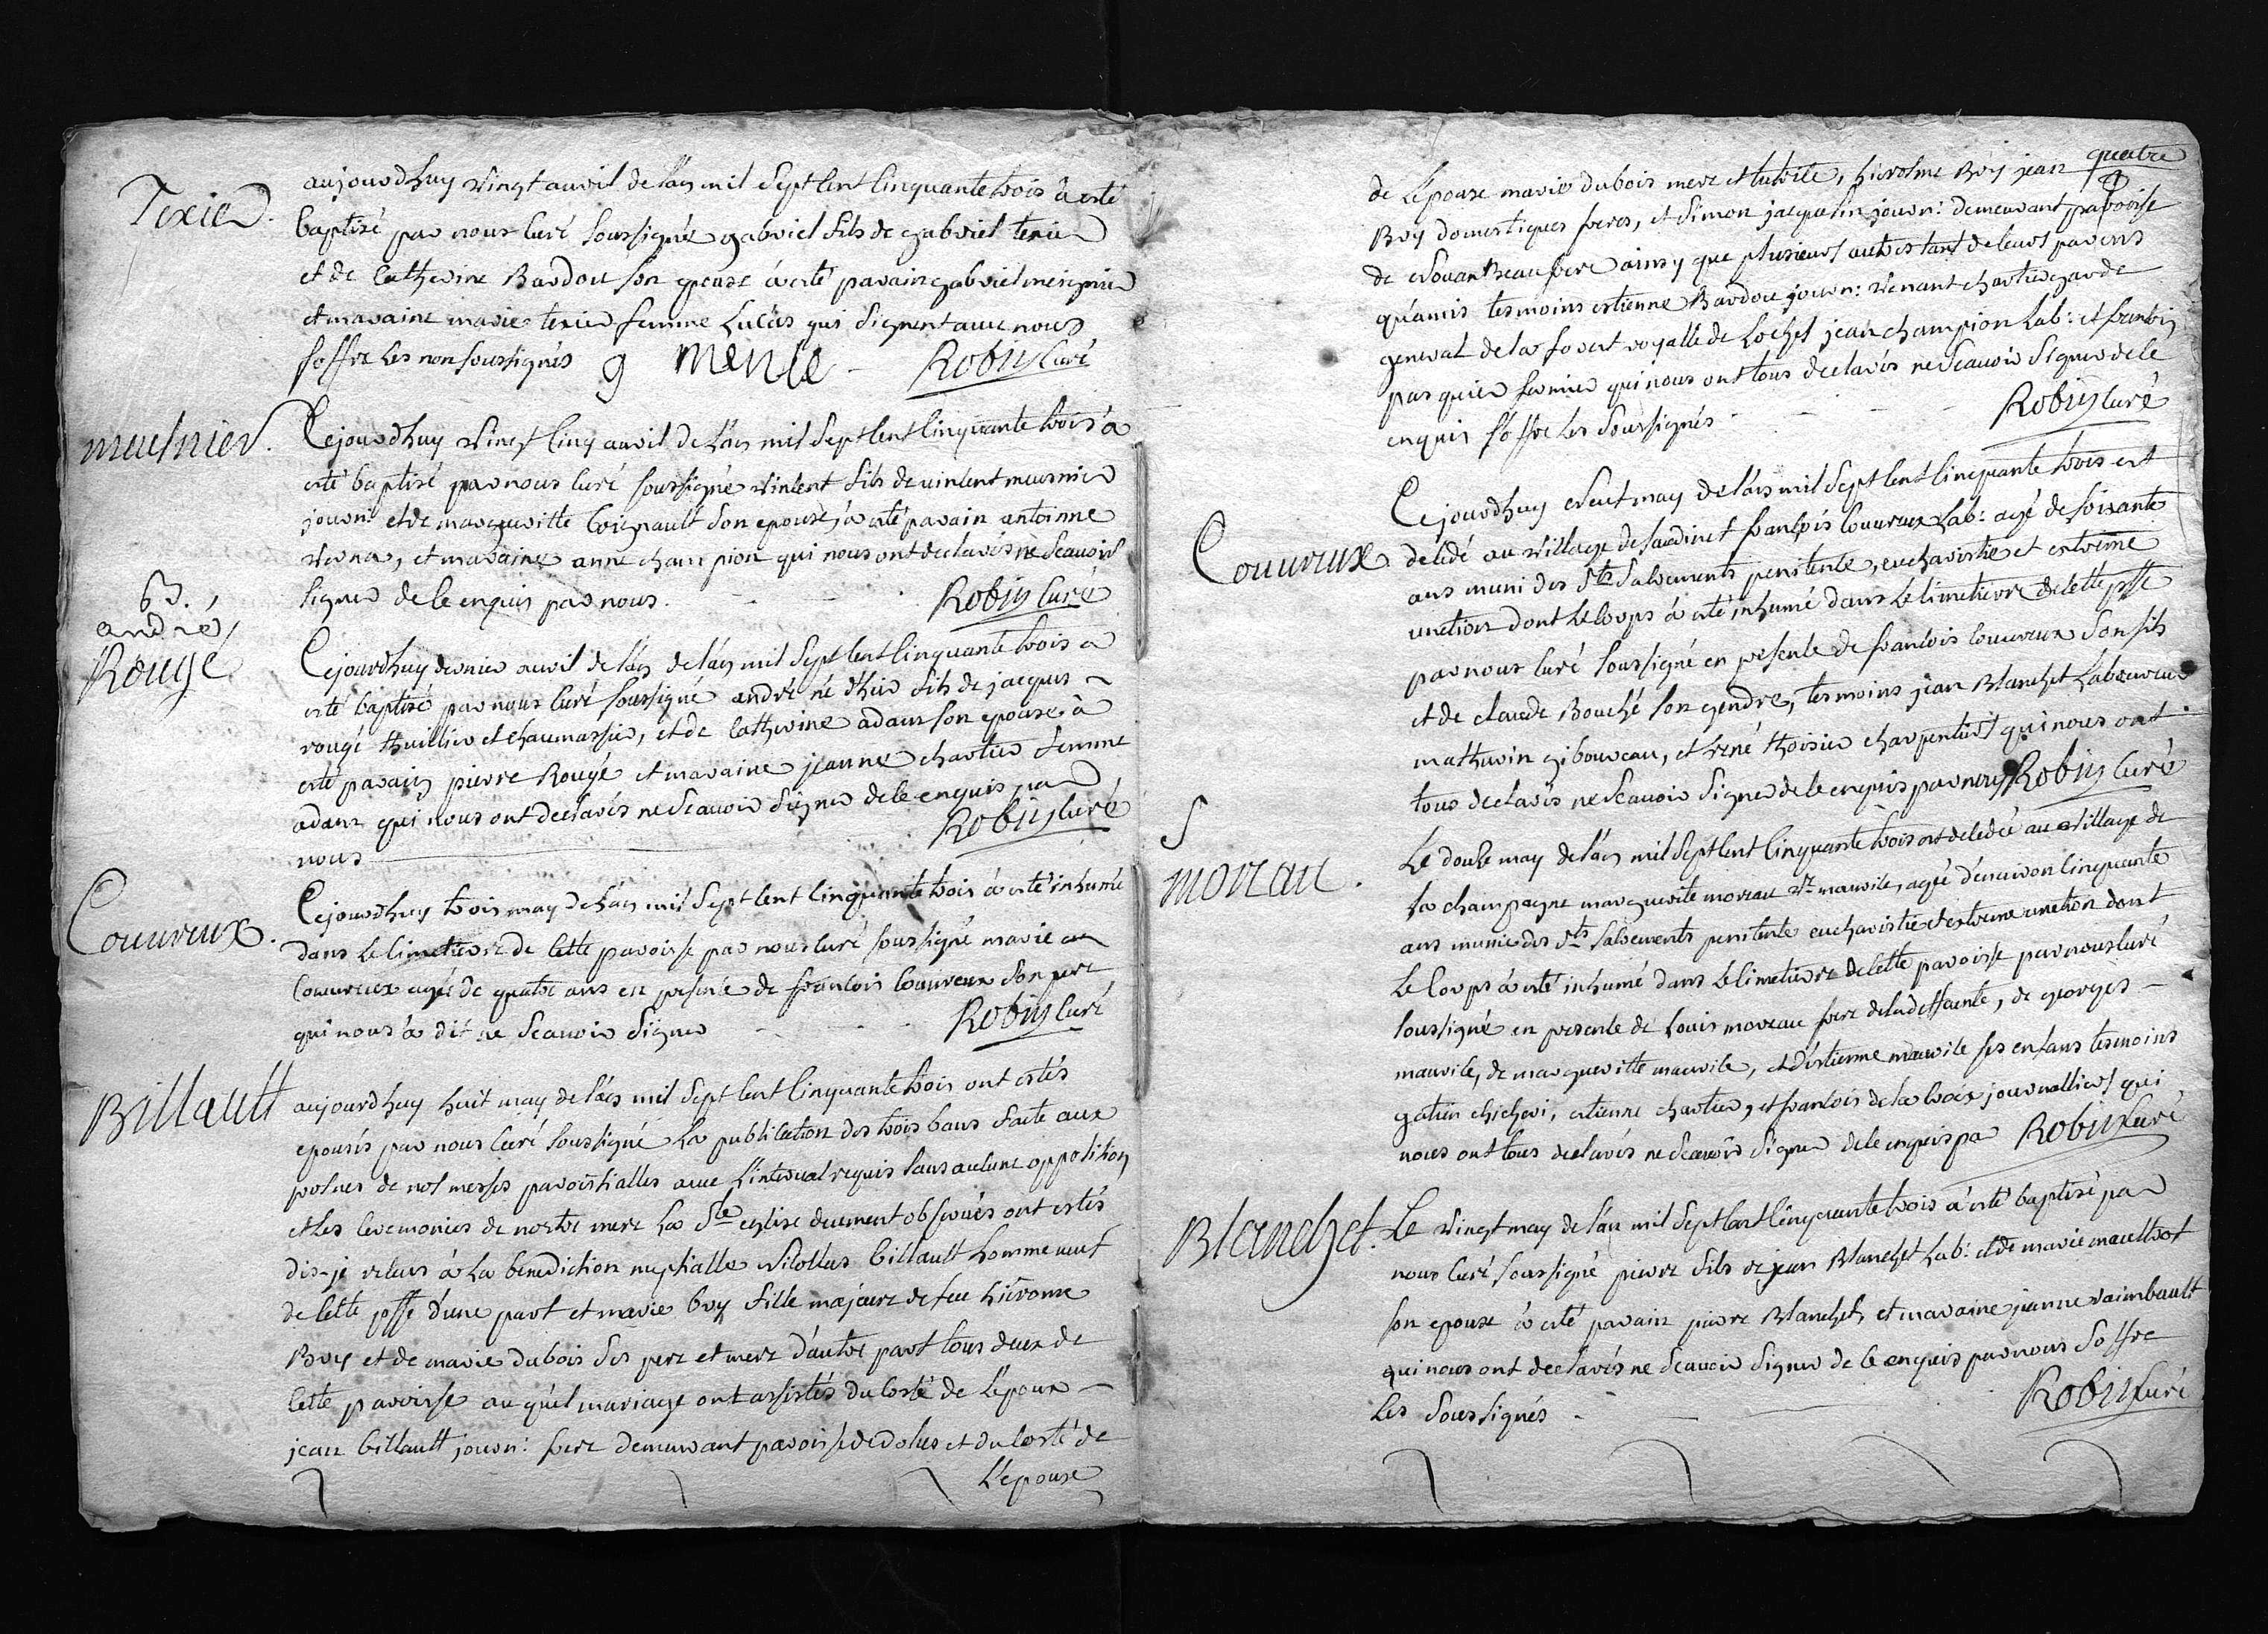 Texier.
aujourdhuy vingt auril de l'an mil sept cent cinquante trois à esté
baptisé par nous curé soussigné gabriel fils de gabriel texier
et de catherine Bardou son epouse à esté parain gabriel
et maraine marie texier femme Lucas qui signent auec nous
soffre les non soussignés g Robin curé
meusnier.
Cejourdhuy vingt cinq auril de l'an mil sept cent cinquante trois à
esté baptisé par nous curé soussigné vincent fils de uincent meusnier
journ: et de margueritte Coignault son epouse, à esté parain antoinne
et maraine anne champion qui nous ont declarés ne scauoir
signer de ce enquis par nous. Robin curé
B.
andré
Rougé
Cejourdhuy dernier auril de l'an de l'an mil sept cent cinquante trois à
esté baptisé par nous curé soussigné andré né d'hier fils de jacques
rougé thuillier et chaumassier, et de catherine adam son epouse à
esté parain pierre Rougé et maraine jeanne chartier femme
adam qui nous ont declarés ne scauoir signer de ce enquis par
nous Robin curé
Couureux.
Cejourdhuy trois may de l'an mil sept cent cinquante trois à esté inhumé
dans le cimetierre de cette paroisse par nous curé soussigné marie
Couureux agée de quatre ans en presence de francois couureux son pere
qui nous à dit ne scauoir signer Robin curé
Billault
aujourdhuy huit may de l'an mil sept cent cinquante trois ont estés
epousés par nous curé soussigné la publication des trois bans faite aux
prosnes de nos messes paroissialles auec l'interual requis sans aucune opposition
et les ceremonies de nostre mere la Ste eglise deuement obseruées ont estés
dis-je relus à la benediction nuptialle Nicollas billault homme ueuf
de cette psse d'une part et marie boy fille majeure de feu hierome
Boy et de marie dubois ses pere et mere d'autre part tous deux de
cette paroisse au quel mariage ont assistés du costé de l'epoux
jean billault journ: frere demeurant paroisse de dolus et du costé de
l'epouse
quatre
de l'epouse marie dubois mere et tutrice, hierosme Boy jean
Boy domestiques freres, et simon jacquelin journ: demeurant paroisse
de Beaufrere ainsy que plusieurs autres tant de leurs parens
qu'amis tesmoins estienne Bardou journ: chartier garde
general de la forest royalle de Loches jean champion Lab: et francois
pasquier fermier qui nous ont tous declarés ne scauoir signer de ce
enquis soffre les soussignés Robin curé
Couureux
Cejourdhuy neuf may de l'an mil sept cent cinquante trois est
decedé au village de francois couureux Lab: agé de soixante
ans muni des Sts sacrements penitente, eucharistie et extreme
unction dont le corps à esté inhumé dans le cimetierre de cette psse
par nous curé soussigné en presence de francois couureux son fils
et de claude Bouché son gendre, tesmoins jean Blanchet Laboureur
mathurin giboureau, et rené thoisier charpentiers qui nous ont
tous declarés ne scauoir signer de ce enquis par nous Robin curé
S
moreau.
Le douze may de l'an mil sept cent cinquante trois est decedée au village de
la champagne marguerite moreau Ve mauuile, agée d'enuiron cinquante
ans munie des Sts sacrements penitente eucharistie et extreme unction dont
le corps à esté inhumé dans le cimetierre de cette paroisse par nous curé
soussigné en presence de Louis moreau frere de la deffunte, de georges
mauuile, de margueritte mauuile, et d'estienne mauuile ses enfans tesmoins
gatien chicheri, estienne chartier, et francois de la croix journalliers qui
nous ont tous declarés ne scauoir signer de ce enquis par Robin curé
Blanchet.
Le vingt may de l'an mil sept cent cinquante trois à esté baptisé par
nous curé soussigné pierre fils de jean Blanchet Lab: et de marie
son epouse à esté parain pierre Blanchet, et maraine jeanne raimbault
qui nous ont declarés ne scauoir signer de ce enquis par nous soffre
les soussignés Robin curé